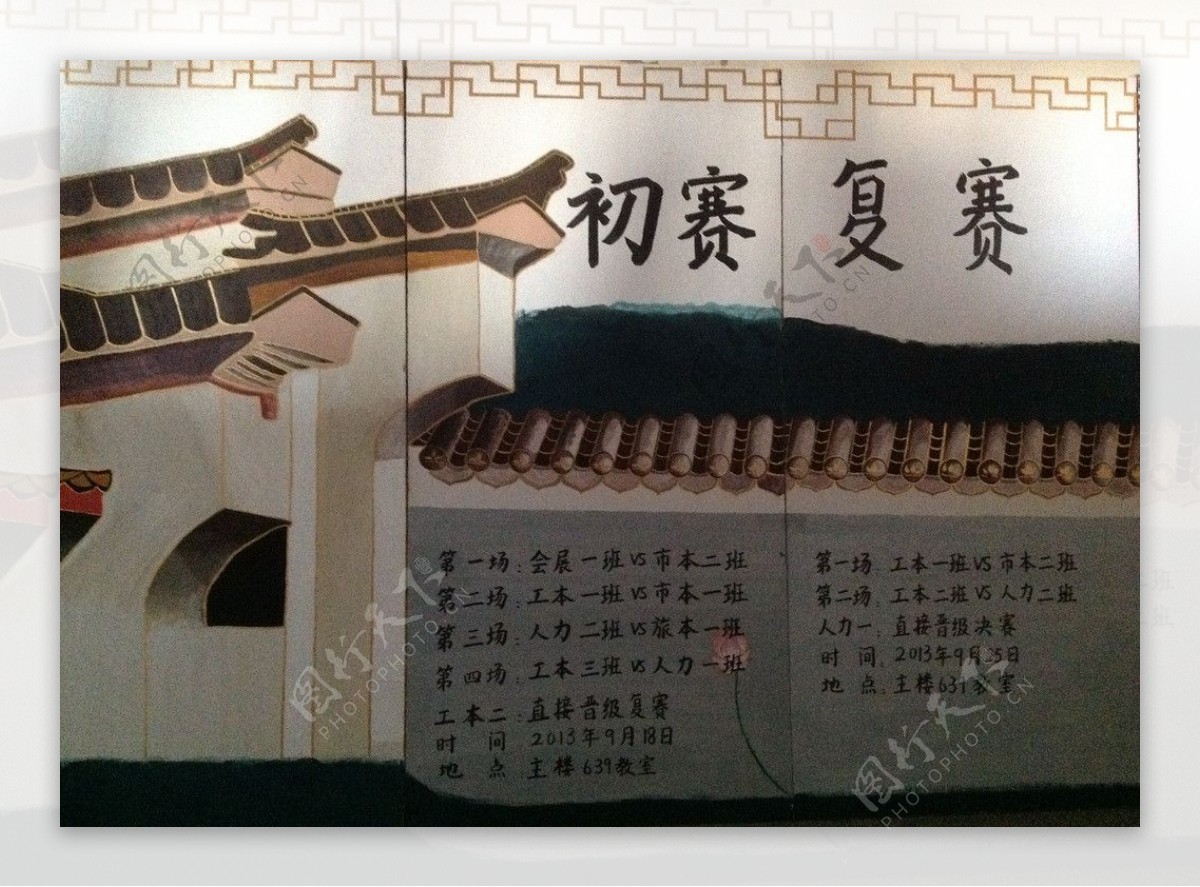 初赛 复赛
第一场：会展一班VS市本二班
第二场：工本一班VS市本一班
第三场：人力二班VS旅本一班
第四场：工本三班VS人力一班
工本二：直接晋级复赛
时间 2013年9月18日
地点：主楼639教室
第一场：工本一班VS市本二班
第二场：工本二班VS人力二班
人力一：直接晋级决赛
时间：2013年9月25日
地点：主楼631教室
图行天下
PHOTOPHOTO.CN